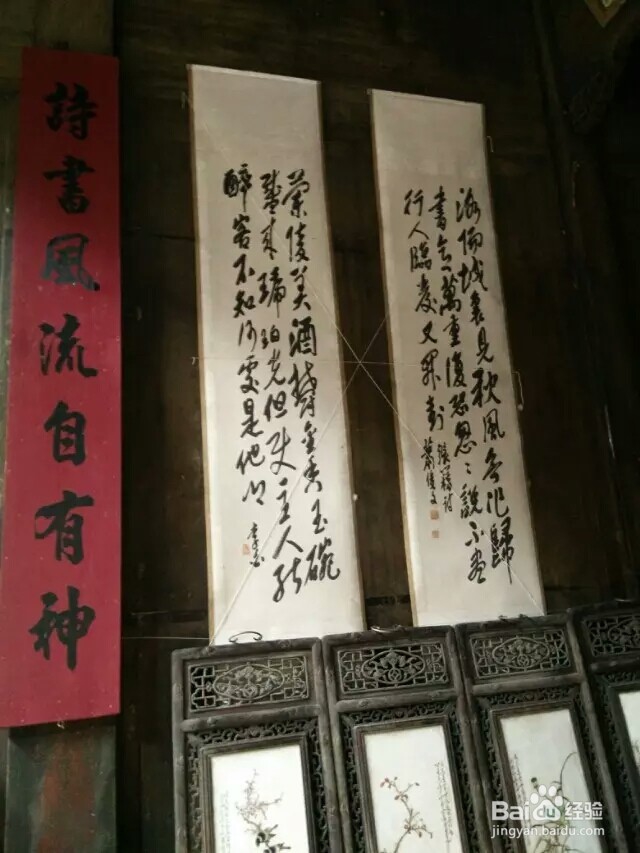 洛陽城裏見秋風欲作歸
書意萬重復恐怱々說不盡
行人臨發又開封
張籍詩
蘭陵美酒鬱金香玉碗
盛來琥珀光但使主人能
醉客不知何處是他鄉
詩書風流自有神
Baidu 经验
jingyan.baidu.com